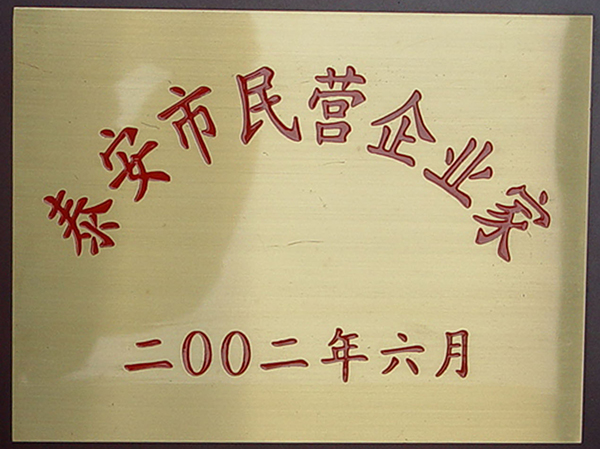 泰安市民营企业家
二00二年六月